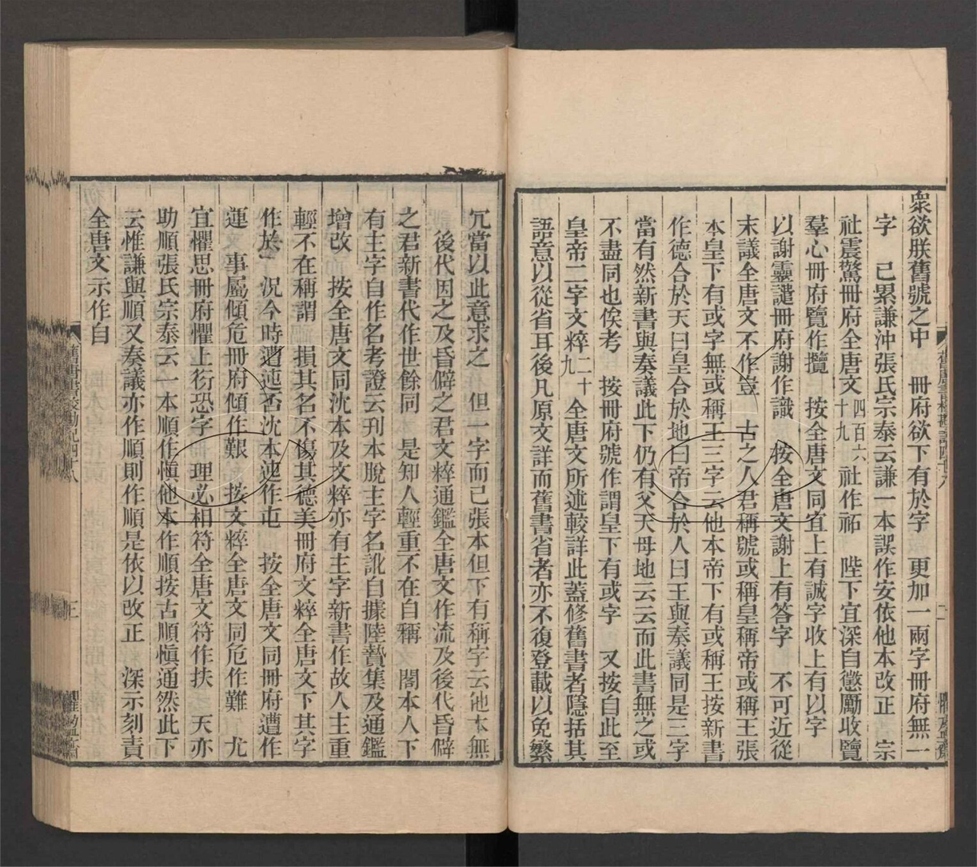 眾欲朕舊號之中　冊府欲下有於字　更加一兩字冊府無一
字　已累謙沖張氏宗泰云謙一本誤作安依他本改正　宗
社震驚冊府全唐文四百六十九社作祏　陛下宜深自懲勵收覽
羣心冊府覽作攬　按全唐文同宜上有誠字收上有以字
以謝靈譴冊府謝作識　按全唐文謝上有答字　不可近從
末議全唐文不作豈　古之人君稱號或稱皇稱帝或稱王張
本皇下有或字無或稱王三字云他本帝下有或稱王按新書
作德合於天曰皇合於地曰帝合於人曰王與奏議同是三字
當有然新書與奏議此下仍有父天母地云云而此書無之或
不盡同也俟考　按冊府號作謂皇下有或字　又按自此至
皇帝二字文粹二十九全唐文所述較詳此蓋修舊書者隱括其
語意以從省耳後凡原文詳而舊書省者亦不復登載以免繁
冗當以此意求之　但一字而已張本但下有稱字云他本無
後代因之及昏僻之君文粹通鑑全唐文作流及後代昏僻
之君新書代作世餘同　是知人輕重不在自稱　閣本人下
有主字自作名考證云刊本脫主字名訛自據陸贄集及通鑑
增改　按全唐文同沈本及文粹亦有主字新書作故人主重
輕不在稱謂　損其名不傷其德美冊府文粹全唐文下其字
作於　況今時遭迍否沈本迍作屯　按全唐文同冊府遭作
運　事屬傾危冊府傾作艱　按文粹全唐文同危作難　尤
宜懼思冊府懼上衍恐字　理必相符全唐文符作扶　天亦
助順張氏宗泰云一本順作愼他本作順按古順愼通然此下
云惟謙與順又奏議亦作順則作順是依以改正　深示刻責
全唐文示作自